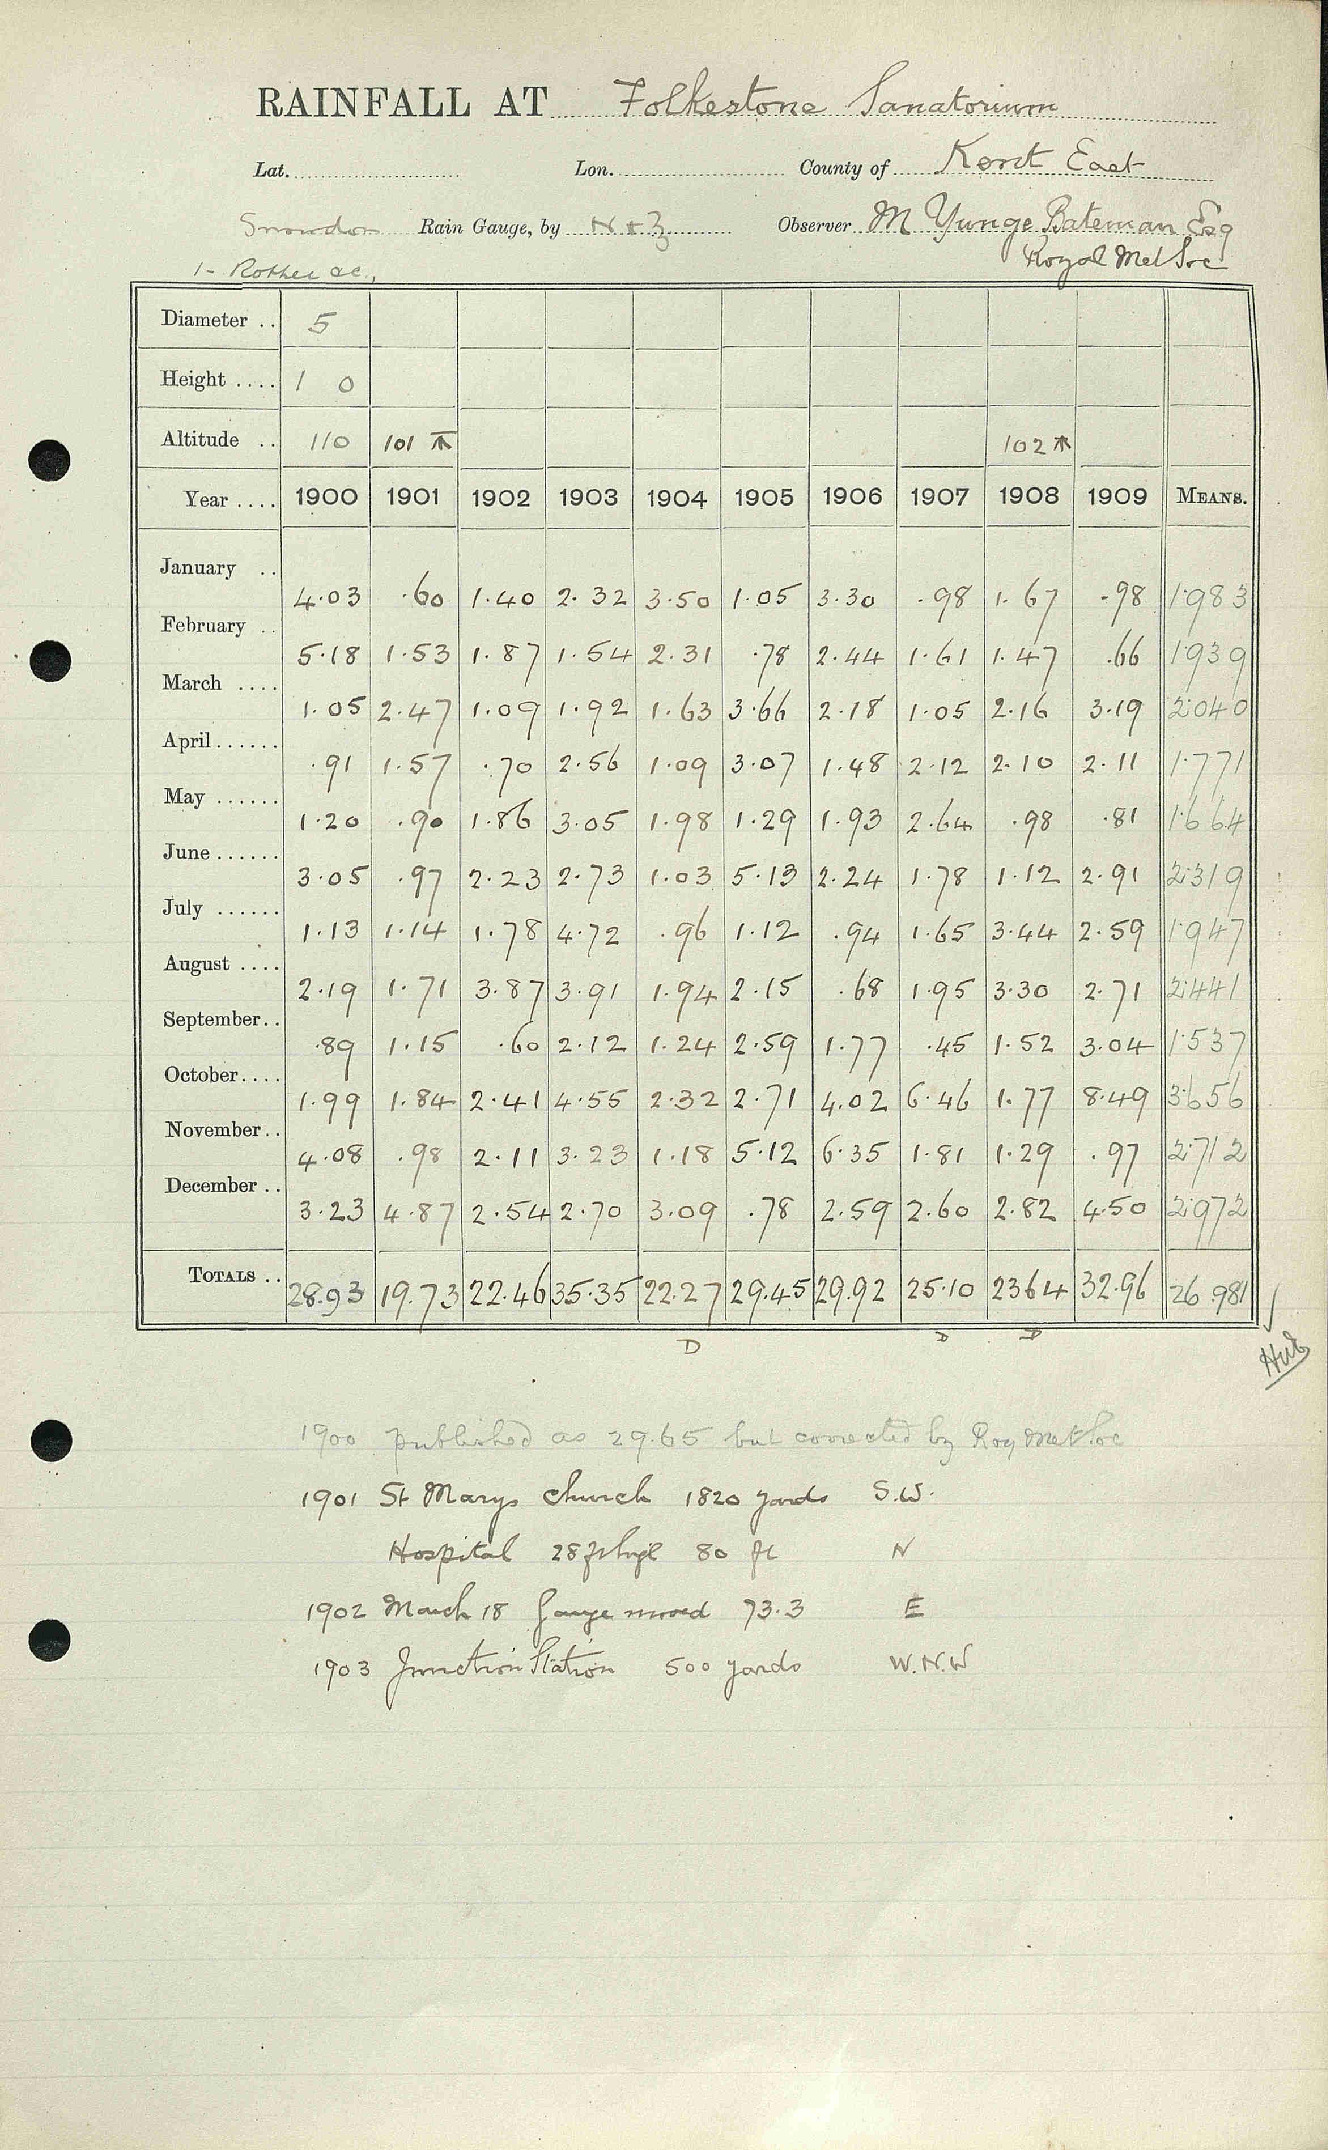 RAINFALL AT Folkestone Sanatorium
Lat. Lon. County of Kent East
Snowdon Rain Gauge, by N & Z Observer M Yunge Bateman Esq
Royal Met Soc
1- Rother &c.,
Diameter .. 5
Height .... 1 0
Altitude .. 110 101 ⊼ 102 ⊼
Year .... 1900 1901 1902 1903 1904 1905 1906 1907 1908 1909 MEANS.
January .. 4.03 .60 1.40 2.32 3.50 1.05 3.30 .98 1.67 .98 1.983
February .. 5.18 1.53 1.87 1.54 2.31 .78 2.44 1.61 1.47 .66 1.939
March .... 1.05 2.47 1.09 1.92 1.63 3.66 2.18 1.05 2.16 3.19 2.040
April ...... .91 1.57 .70 2.56 1.09 3.07 1.48 2.12 2.10 2.11 1.771
May ...... 1.20 .90 1.86 3.05 1.98 1.29 1.93 2.64 .98 .81 1.664
June ...... 3.05 .97 2.23 2.73 1.03 5.13 2.24 1.78 1.12 2.91 2.319
July ...... 1.13 1.14 1.78 4.72 .96 1.12 .94 1.65 3.44 2.59 1.947
August .... 2.19 1.71 3.87 3.91 1.94 2.15 .68 1.95 3.30 2.71 2.441
September .. .89 1.15 .60 2.12 1.24 2.59 1.77 .45 1.52 3.04 1.537
October .... 1.99 1.84 2.41 4.55 2.32 2.71 4.02 6.46 1.77 8.49 3.656
November .. 4.08 .98 2.11 3.23 1.18 5.12 6.35 1.81 1.29 .97 2.712
December .. 3.23 4.87 2.54 2.70 3.09 .78 2.59 2.60 2.82 4.50 2.972
TOTALS .. 28.93 19.73 22.46 35.35 22.27 29.45 29.92 25.10 23.64 32.96 26.981 ✓
D D D
1900 published as 29.65 but corrected by Roy Met Soc
1901 St Marys Church 1820 yards S.W.
Hospital 28 ft high 80 ft N
1902 March 18 Gauge moved 73.3 E
1903 Junction Station 500 yards W.N.W